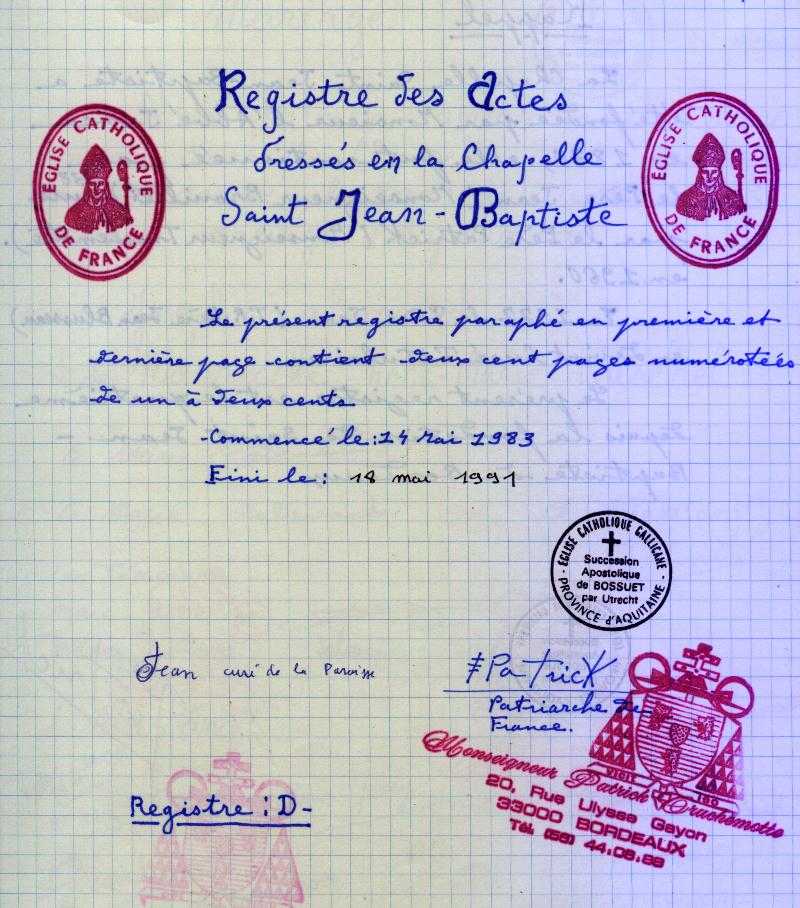 Registre des Actes
dressés en la Chapelle
Saint Jean-Baptiste
ÉGLISE CATHOLIQUE
DE FRANCE
ÉGLISE CATHOLIQUE
DE FRANCE
Le présent registre paraphé en première et
dernière page contient deux cent pages numérotées
de un à deux cents
-Commencé le: 14 Mai 1983
Fini le: 18 mai 1991
- ÉGLISE CATHOLIQUE GALLICANE -
Succession
Apostolique
de BOSSUET
par Utrecht
PROVINCE d'AQUITAINE
Jean curé de la Paroisse
‡Patrick
Patriarche de
France.
Monseigneur Patrick Truchemotte
20, Rue Ulysse Gayon
33000 BORDEAUX
Tél. (56) 44.08.88
Registre : D-